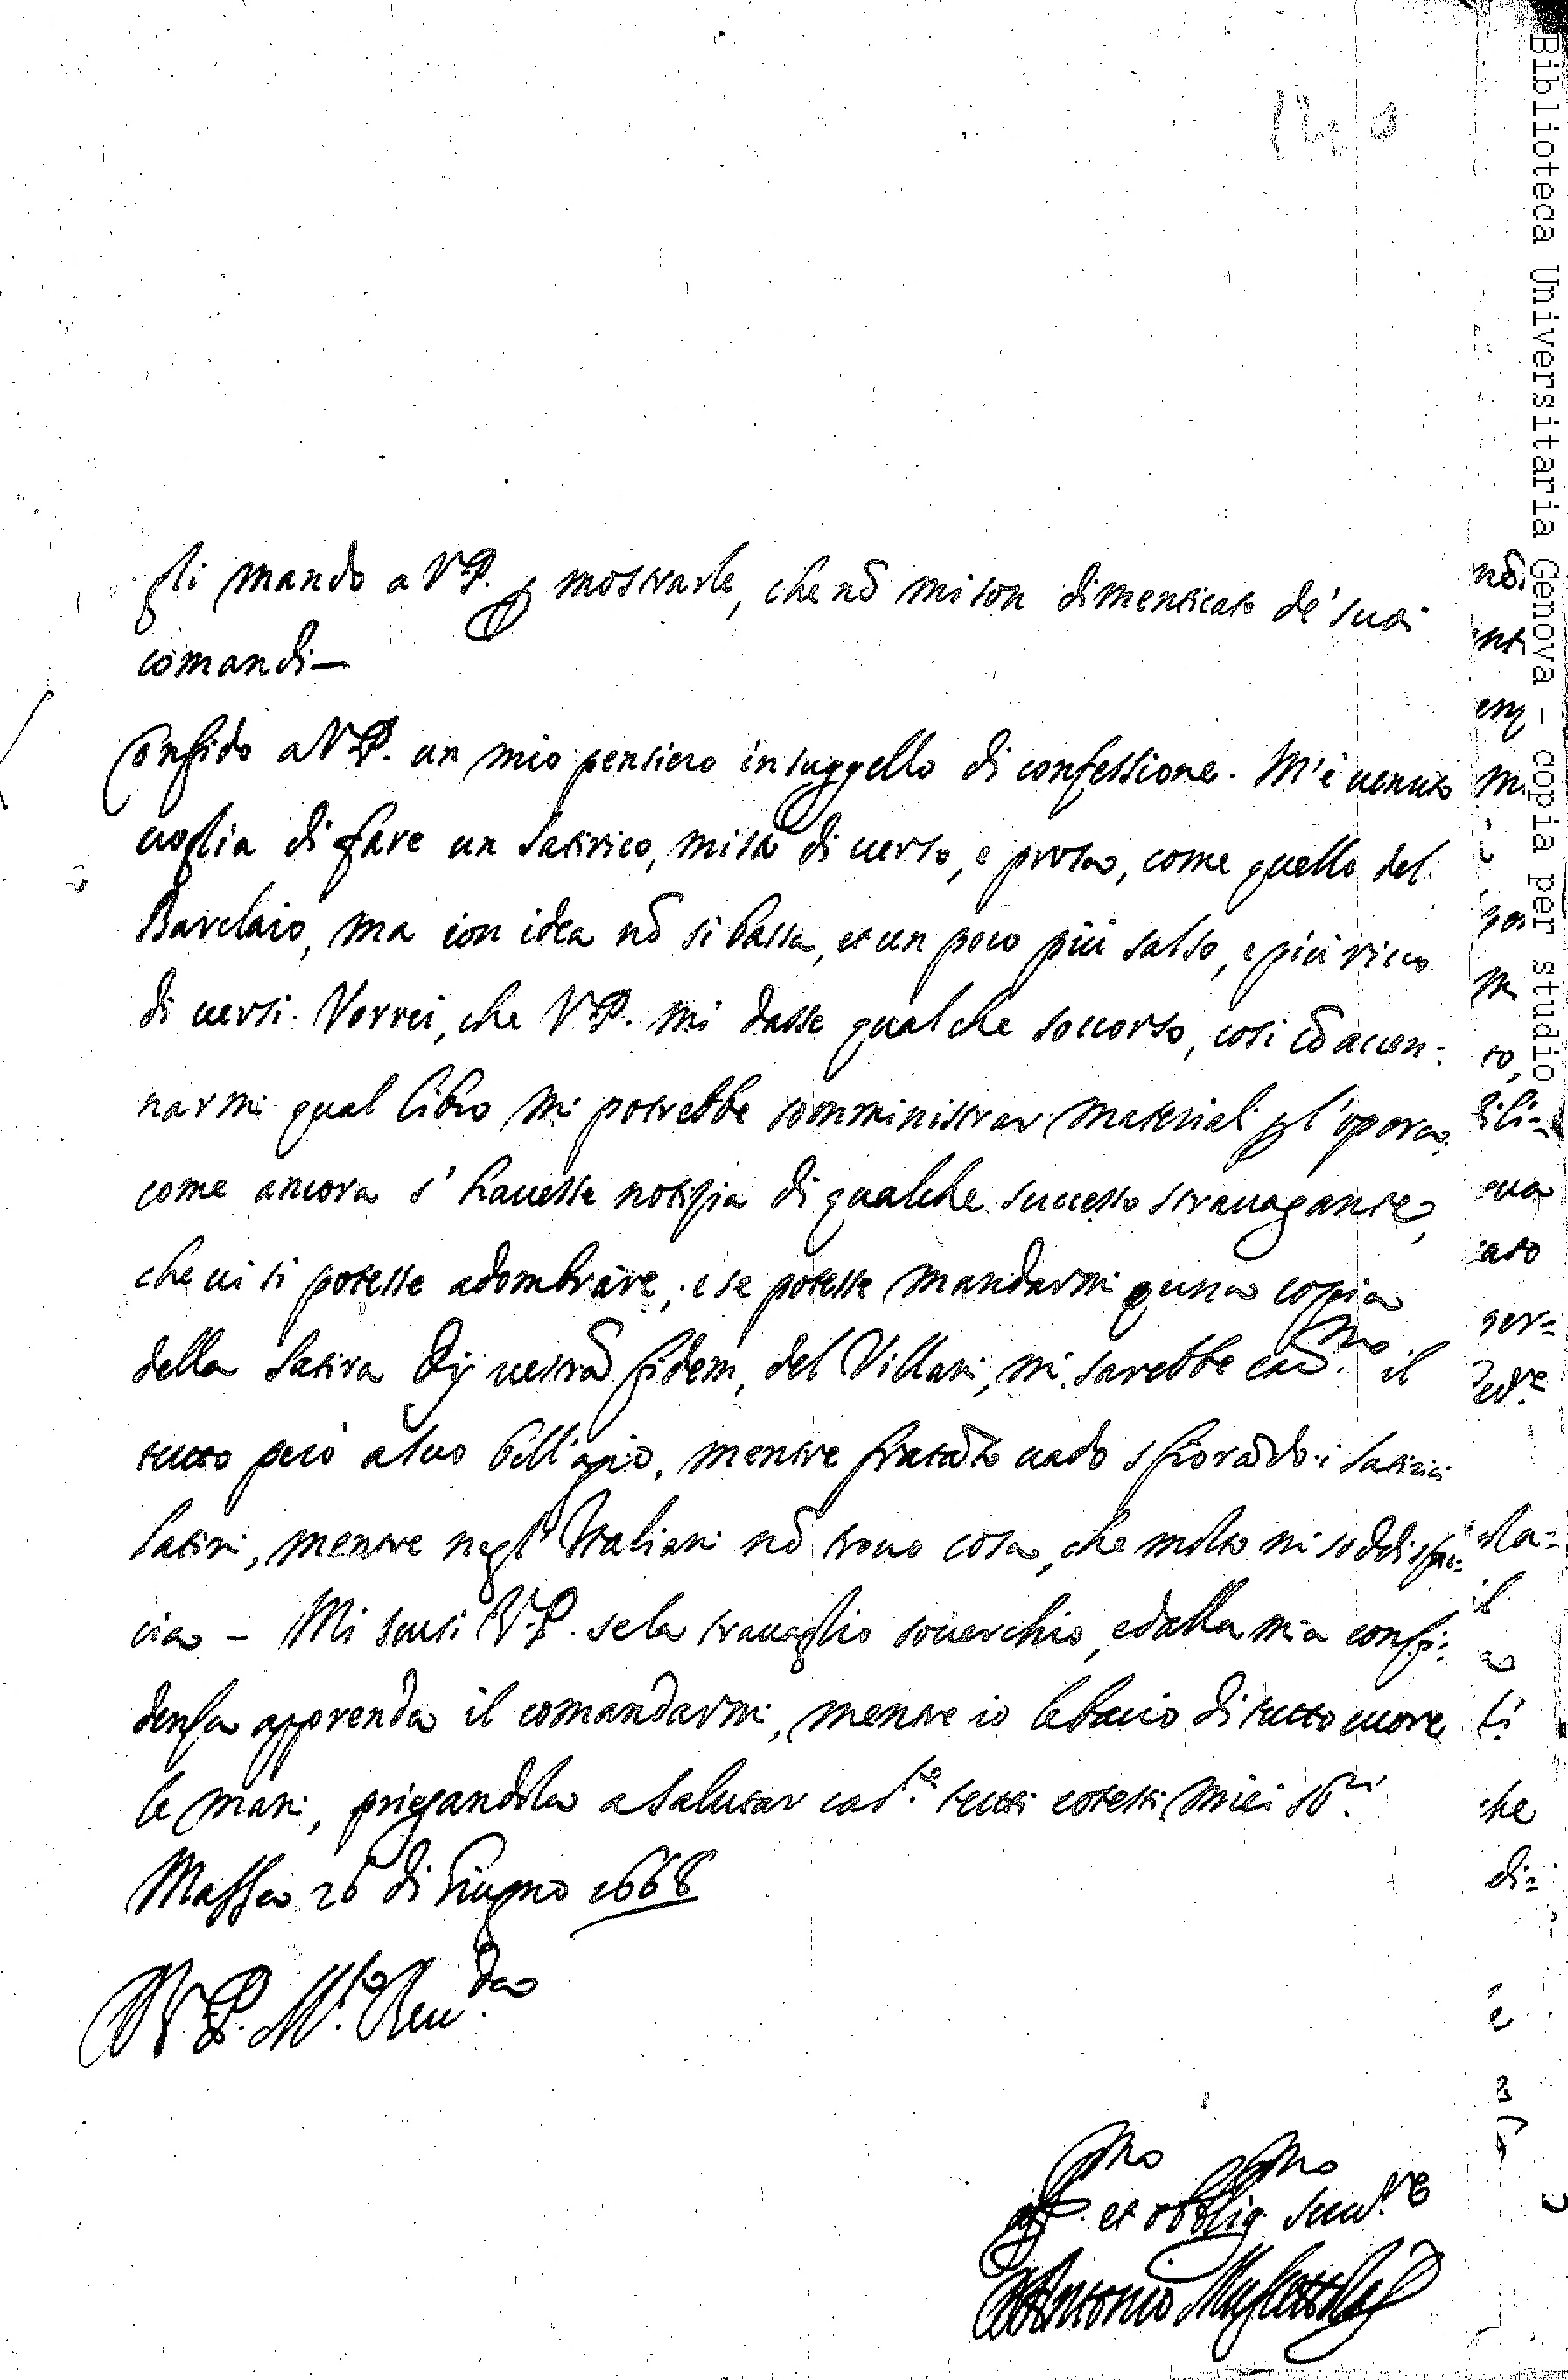 140
gli mando a V.P. ꝑ mostrarle, che nõ mi son dimenticato de' suoi
comandi—
Confido a V.P. un mio pensiero in suggello di confessione. M'è uenuto
uoglia di fare un Satirico, misto di uerso, e prosa, come quello del
Barclaio, ma con idea nõ si bassa, et un poco più salso, e più ricco
di uersi. Vorrei, che V.P. mi dasse qualche soccorso, cosi cõ accen:
narmi qual libro mi potrebbe somministrar materiali ꝑ l'opera,
come ancora s'hauesse notizia di qualche successo strauagante,
che ui si potesse adombrare; e se potesse mandarmi una copia
della Satira Dij uestrã fidem, del Villani, mi sarebbe car.mo il
tutto però a suo bell'agio, mentre fratãto uado sfiorãdo i Satirici
latini, mentre negl'Italiani nõ trouo cosa, che molto mi soddisfac:
cia – Mi scusi V.P. se la trauaglio souerchio, e dalla mia confi:
denza apprenda il comandarmi, mentre io le bacio di tutto cuore
le mani, pregandola a salutar cad.te tutti cotesti miei SS.ri
Massa 26 di Giugno 1668
D V.P. M.to Reu.da
aff.mo et obblig.mo Seru.re
Antonio Muscettola
Biblioteca Universitaria Genova - copia per studio